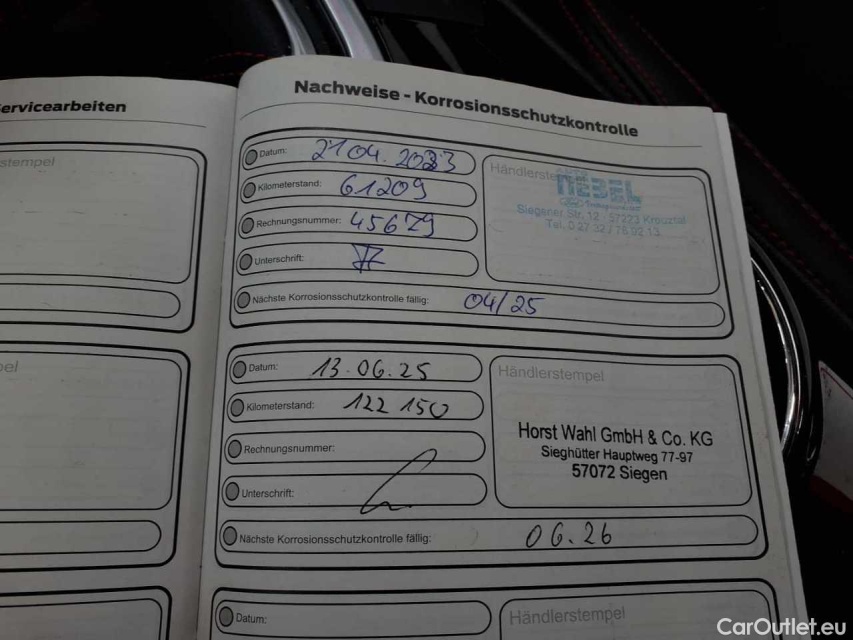 ervicearbeiten
stempel
el
Nachweise - Korrosionsschutzkontrolle
Datum: 21 04. 2023
Kilometerstand: 61209
Rechnungsnummer: 45679
Unterschrift:
Nächste Korrosionsschutzkontrolle fällig: 04/25
Händlerste
NEBEL
Siegener Str. 12 · 57223 Kreuztal
Tel. 0 27 32 / 76 92 13
Datum: 13.06.25
Kilometerstand: 122 150
Rechnungsnummer:
Unterschrift:
Nächste Korrosionsschutzkontrolle fällig: 06.26
Händlerstempel
Horst Wahl GmbH & Co. KG
Sieghütter Hauptweg 77-97
57072 Siegen
Datum:
Händlerstempel
CarOutlet.eu